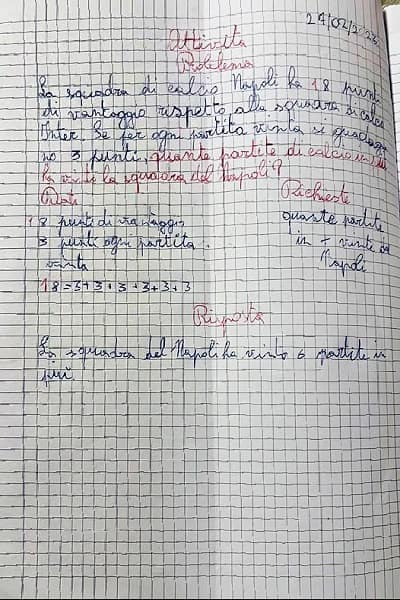 24/02/2023
Attività
Problema
La squadra di calcio Napoli ha 18 punti
di vantaggio rispetto alla squadra di calcio
Inter. Se per ogni partita vinta si guadagna
no 3 punti, quante partite di calcio in più
ha vinto la squadra del Napoli?
Dati
Richieste
18 punti di vantaggio
3 punti ogni partita
vinta
quante partite
in + vinte dal
Napoli
18 = 3+3+3+3+3+3
Risposta
La squadra del Napoli ha vinto 6 partite in
più.